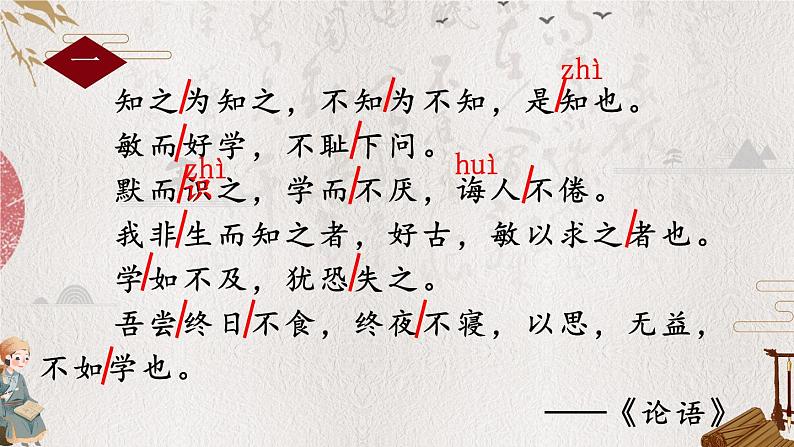 一
zhì
知之/为知之，不知/为不知，是/知也。
敏而/好学，不耻/下问。
zhì huì
默而/识之，学而/不厌，诲人/不倦。
我非/生而知之者，好古，敏以求之/者也。
学/如不及，犹恐/失之。
吾尝/终日/不食，终夜/不寝，以思，无益，
不如/学也。
——《论语》